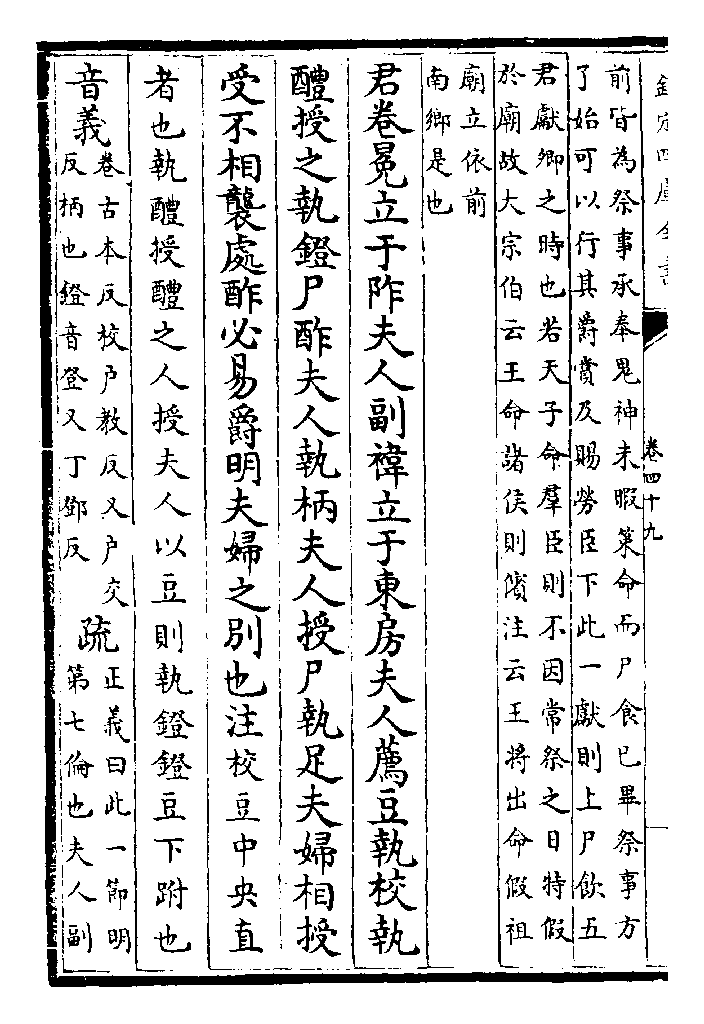 欽定四庫全書
卷四十九
前皆為祭事承奉鬼神未暇策命而尸食已畢祭事方
了始可以行其爵賞及賜勞臣下此一獻則上尸飲五
君獻卿之時也若天子命羣臣則不因常祭之日特假
於廟故大宗伯云王命諸侯則儐注云王將出命假祖
廟立依前
南鄉是也
君卷冕立于阼夫人副褘立于東房夫人薦豆執校執
醴授之執鐙尸酢夫人執柄夫人授尸執足夫婦相授
受不相襲處酢必易爵明夫婦之別也注校豆中央直
者也執醴授醴之人授夫人以豆則執鐙鐙豆下跗也
音義卷古本反校户教反又户交
反柄也鐙音登又丁鄧反
疏正義曰此一節明
第七倫也夫人副